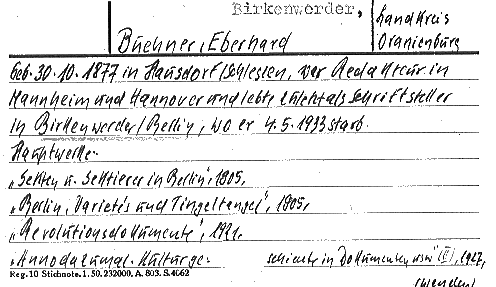 Birkenwerder,
Landkreis
Oranienburg
Buchner, Eberhard
Geb. 30.10.1877 in Hausdorf/Schlesien, war Redakteur in
Mannheim und Hannover und lebte zuletzt als Schriftsteller
in Birkenwerder/Berlin, wo er 4.5.1933 starb.
Hauptwerke:
„Sekten u. Sektierer in Berlin", 1905,
„Berlin, Varietés und Tingeltangel", 1905,
„Revolutionsdokumente", 1921.
„Anno dazumal. Kulturge-
schichte in Dokumenten usw" (II), 1927,
Reg. 10 Stichnote. 1. 50. 232000. A. 803. S. 4662
(wenden)